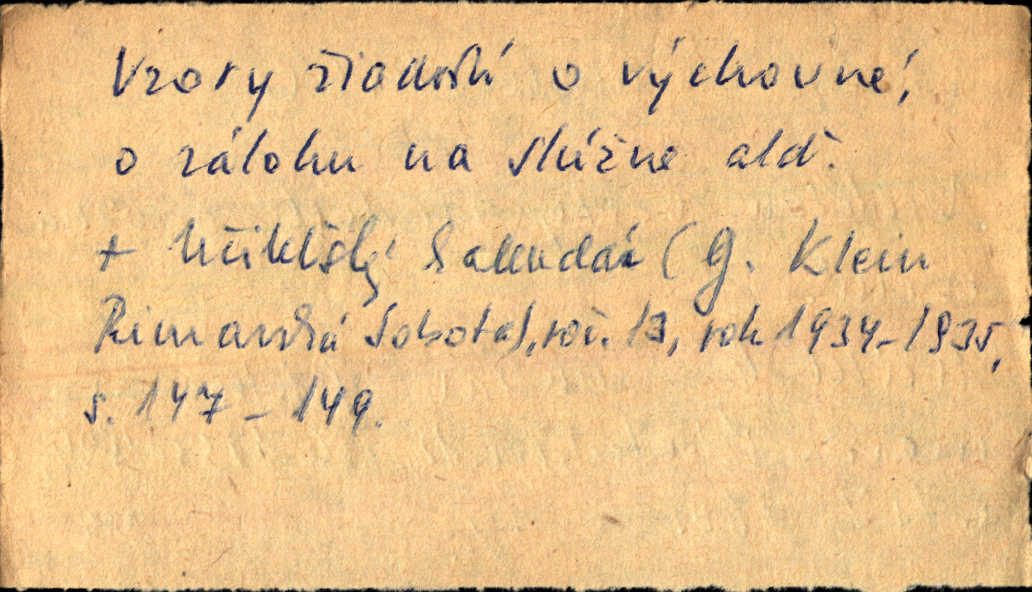 Vzory žiadostí o výchovné,
o zálohu na slúžne atď.
+ Učiteľský kalendár (G. Klein
Rimavská Sobota), roč. 13, rok 1934-1935,
s. 147-149.